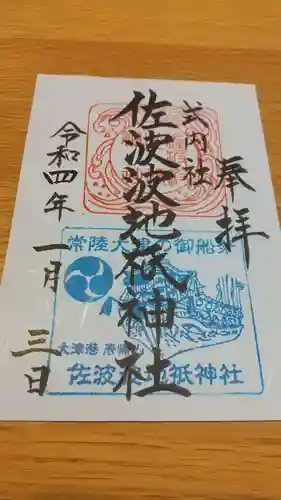 奉拝
式内社
佐波波地祇神社
令和四年一月三日
常陸大津の御船祭
大津港 唐帰山
佐波波地祇神社